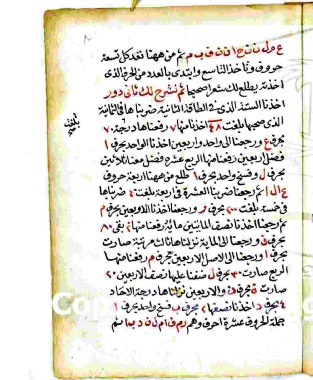 ع م ل ن ت ج ا ق ف ب م ثم من ههنا تعد كل تسعة
حروف وتاخذ التاسع وابتدى بالعدد من الحرف الذى
اخذته يطلع لك اسم صحيحا ثم نشرح لك ثانى دور
اخذنا الستة الذى فى الطاقة الثانية ضربناها فى الثمانية
الذى صحبها بلغت ٤٨ اخذنا منها ٧ رفعناها درجة ٧٠
بحرف ع ورجعنا الى واحد واربعين اخذنا الواحد بحرف ا
فضل اربعين رفعنا منها الربع عشرة وفضل معنا ثلاثين
بحرف ل وفسخ واحد بحرف ا طلع من ههنا اربعة حروف
ع ا ل ا ثم رجعنا ضربنا العشرة فى اربعة بلغت ٤٠ ضربناها
فى خمسة بلغت ٢٠٠ بحرف ر ورجعنا اخذنا الاربعين بحرف م
ثم رجعنا اخذنا نصف المايتين مائة رفعنا منها ٢٠ بقى ٨٠
بحرف ف ورجعنا الى المائة نزلناها لها مرتبة صارت
بحرف ا ورجعنا الى الاصل الاربعين بحرف م رفعنا منها
الربع صارت ٣٠ بحرف ل ضفنا عليها نصف الاربعين ٢٠
صارت ٥٠ بحرف ن والاربعين نزلناها درجة الاحاد
٤ بحرف د اخذنا نصفها ٢ بحرف ب فسخ واحد بحرف ا
جملة الحروف عشرة احرف وهم ر م ف ا م ل ن د ب ا ثم
Co